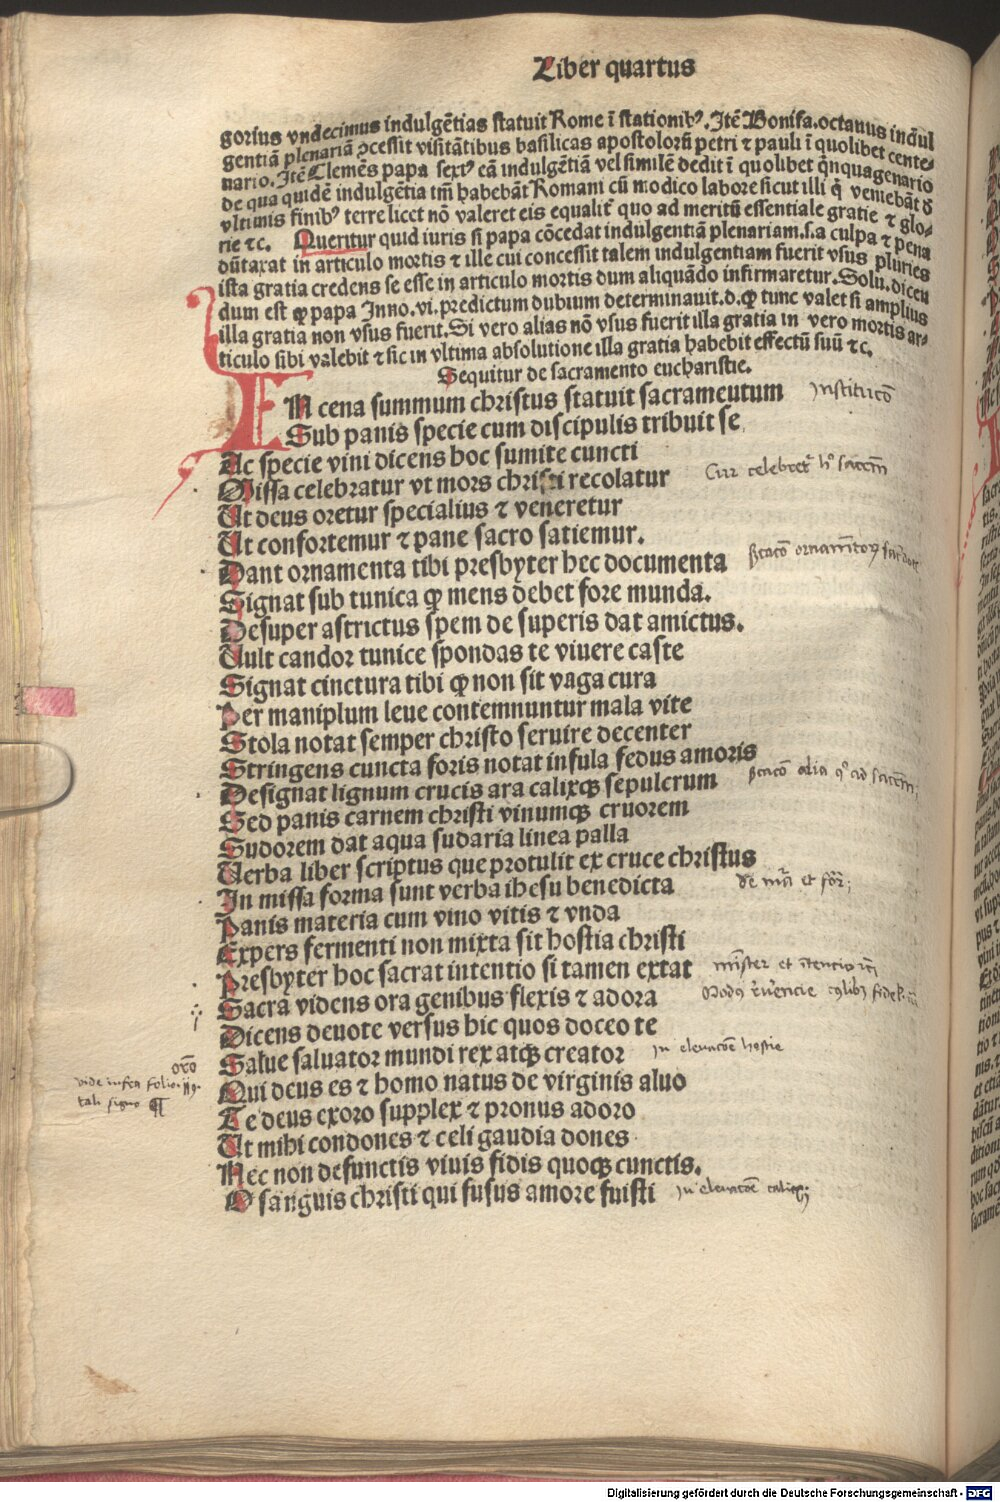 Liber quartus
gorius vndecimus indulgētias statuit Rome ī stationibꝰ. Itē Bonifa. octauus indul
gentiā plenariā ꝓcessit visitātibus basilicas apostolorū petri ⁊ pauli ī quolibet cente⸗
nario. Itē Clemēs papa sextꝰ eā indulgētiā vel similē dedit ī quolibet q̄nquagenario
de qua quidē indulgētia tm̄ habebāt Romani cū modico labore sicut illi q̄ veniebāt d
vltimis finibꝰ terre licet nō valeret eis equalit̄ quo ad meritū essentiale gratie ⁊ glo⸗
rie ⁊c. Queritur quid iuris si papa cōcedat indulgentiā plenariam. s. a culpa ⁊ pena
dūtaxat in articulo mortis ⁊ ille cui concessit talem indulgentiam fuerit vsus pluries
ista gratia credens se esse in articulo mortis dum aliquādo infirmaretur. Solu. dicen
dum est ꝙ papa Inno. vi. predictum dubium determinauit. d. ꝙ tunc valet si amplius
illa gratia non vsus fuerit. Si vero alias nō vsus fuerit illa gratia in vero mortis ar⸗
ticulo sibi valebit ⁊ sic in vltima absolutione illa gratia habebit effectū suū ⁊c.
Sequitur de sacramento eucharistie.
IN cena summum christus statuit sacrameutum
Sub panis specie cum discipulis tribuit se
Ac specie vini dicens hoc sumite cuncti
Missa celebratur vt mors christi recolatur
Ut deus oretur specialius ⁊ veneretur
Ut confortemur ⁊ pane sacro satiemur.
Dant ornamenta tibi presbyter hec documenta
Signat sub tunica ꝙ mens debet fore munda.
Desuper astrictus spem de superis dat amictus.
Uult candor tunice spondas te viuere caste
Signat cinctura tibi ꝙ non sit vaga cura
Per maniplum leue contemnuntur mala vite
Stola notat semper christo seruire decenter
Stringens cuncta foris notat infula fedus amoris
Designat lignum crucis ara calixqꝫ sepulcrum
Sed panis carnem christi vinumqꝫ cruorem
Sudorem dat aqua sudaria linea palla
Uerba liber scriptus que protulit ex cruce christus
In missa forma sunt verba ihesu benedicta
Panis materia cum vino vitis ⁊ vnda
Expers fermenti non mixta sit hostia christi
Presbyter hoc sacrat intentio si tamen extat
Sacra videns ora genibus flexis ⁊ adora
Dicens deuote versus hic quos doceo te
Salue saluator mundi rex atqꝫ creator
In eleuacōe hostie
Qui deus es ⁊ homo natus de virginis aluo
Te deus exoro supplex ⁊ pronus adoro
Ut mihi condones ⁊ celi gaudia dones
Nec non defunctis viuis fidis quoqꝫ cunctis.
O sanguis christi qui fusus amore fuisti
Digitalisierung gefördert durch die Deutsche Forschungsgemeinschaft - DFG